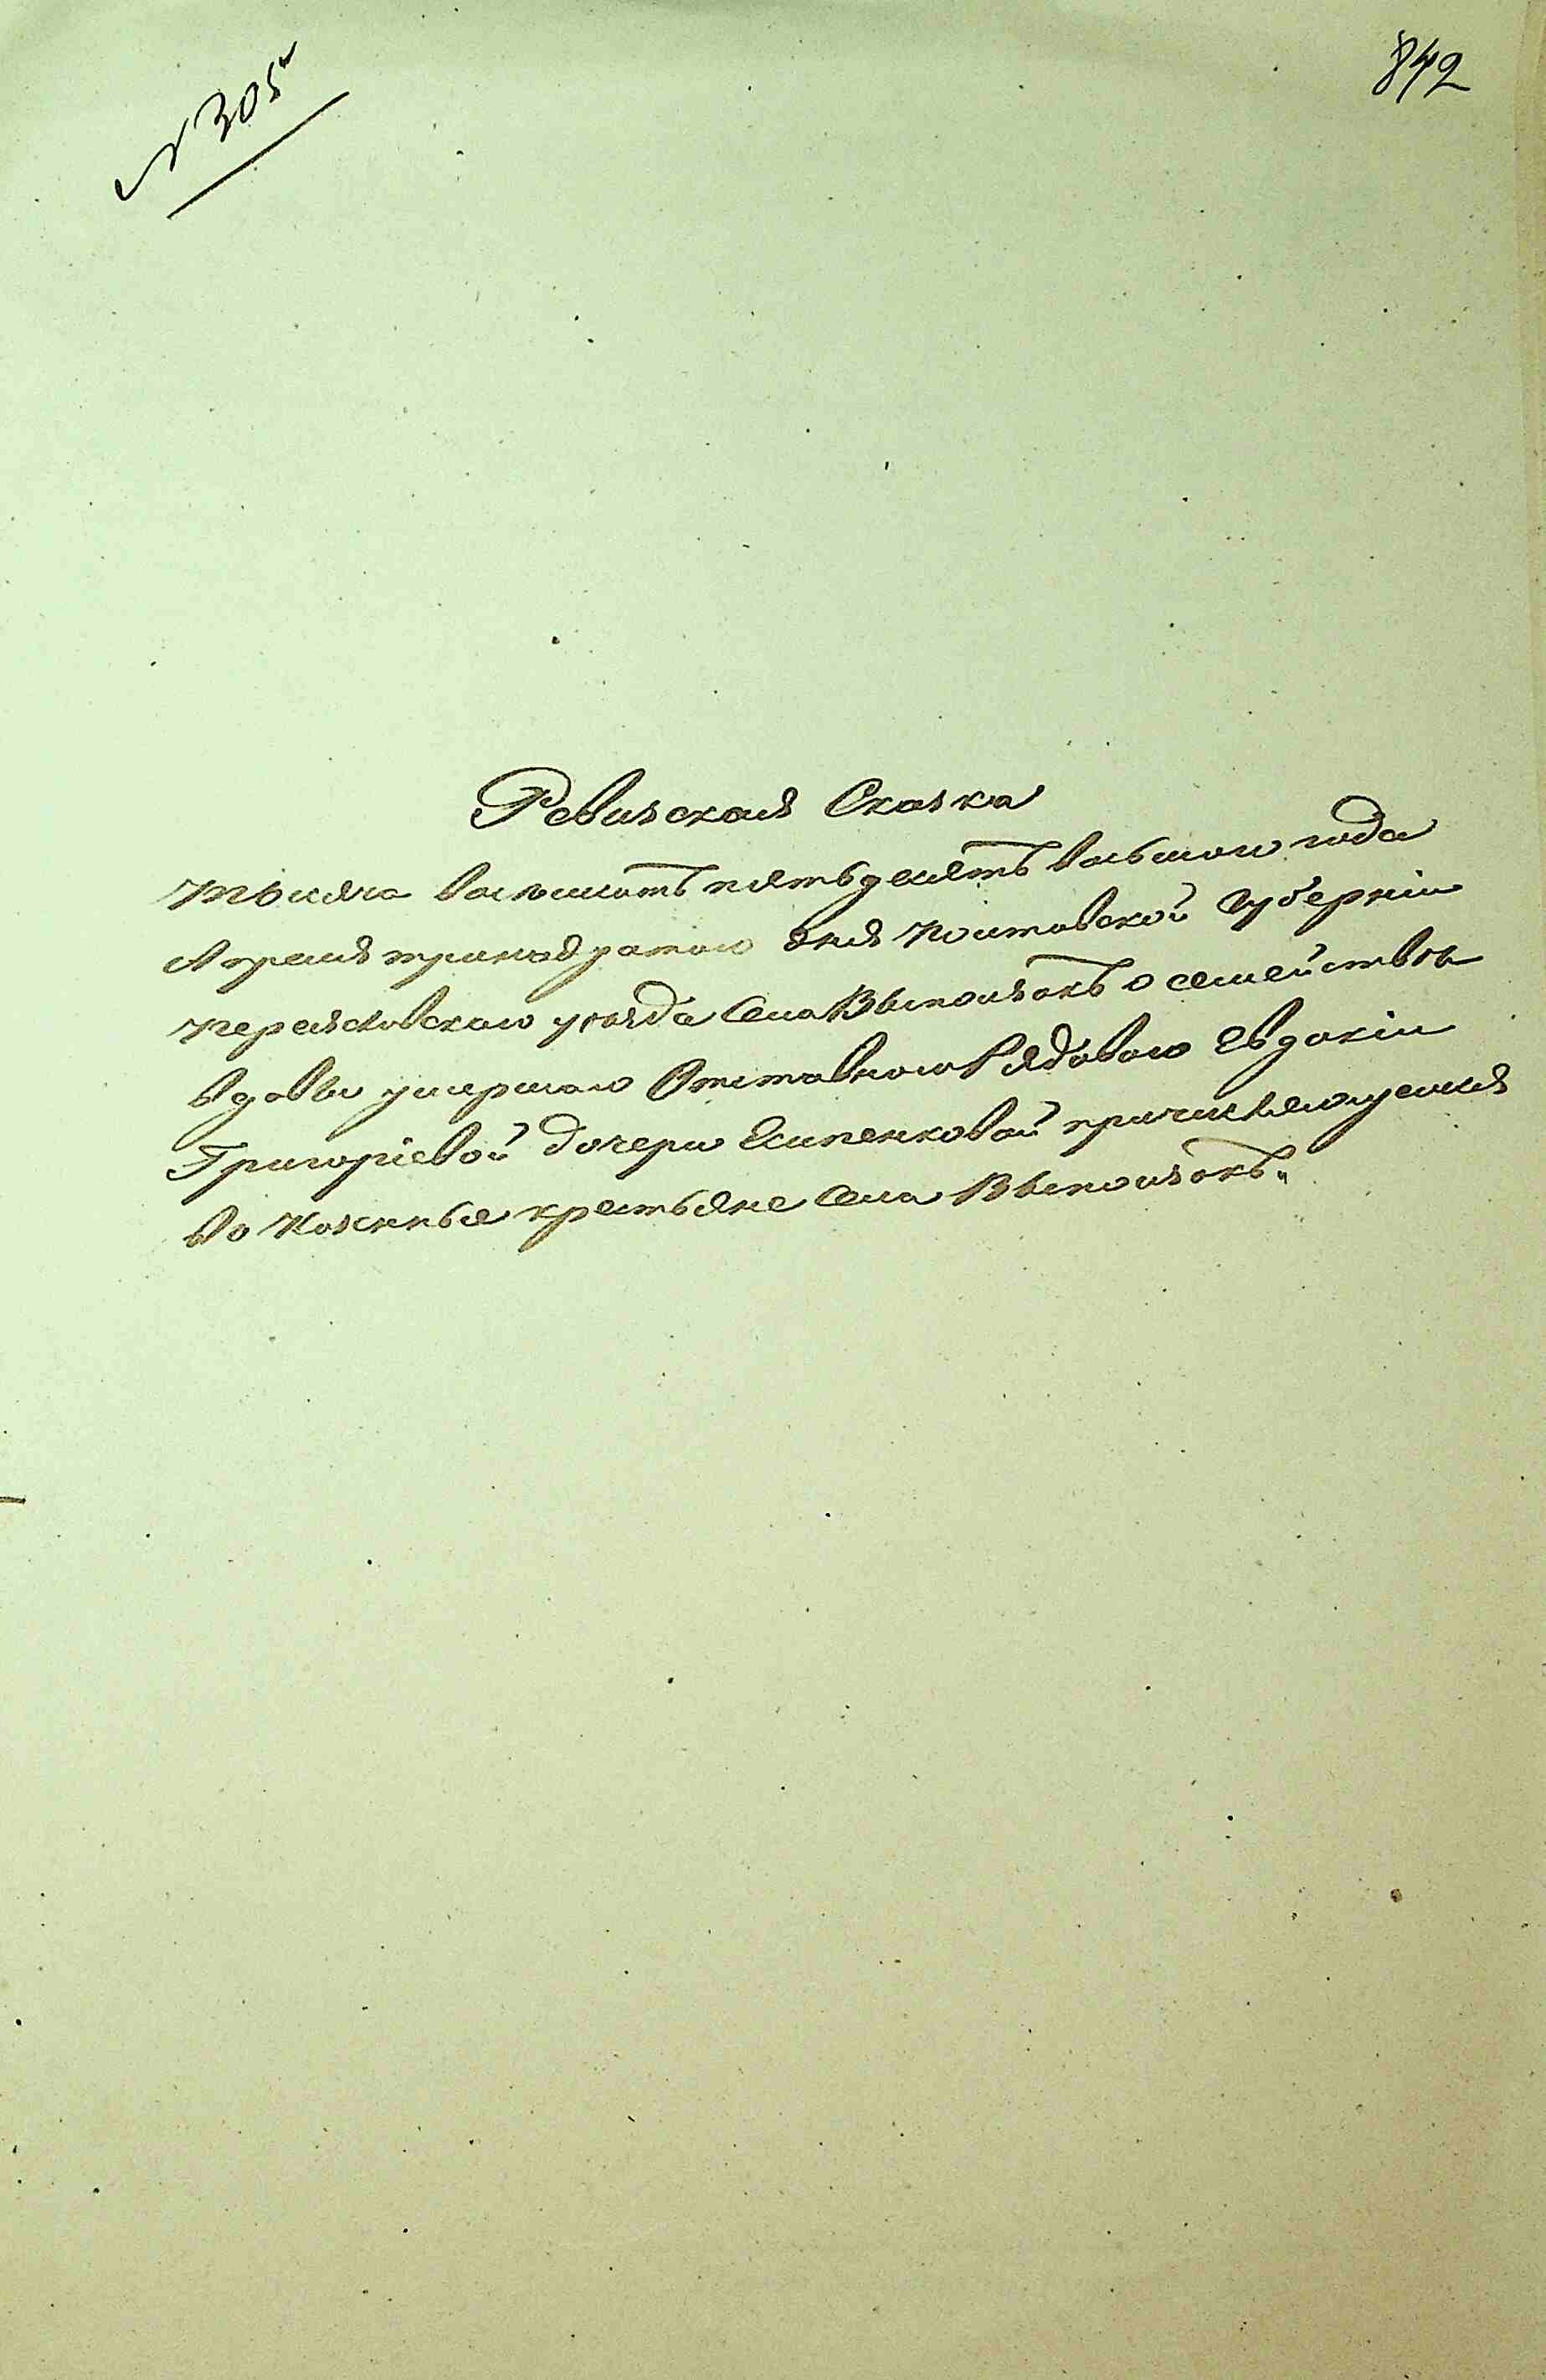 № 305
842
Ревизская Сказка
Тысяча восемсотъ пятьдесятъ восьмого года
Апреля тринадцатого дня Полтавской Губерніи
Переясловскаго уезда Села Выползокъ о семействе
вдовы умершаго Отставного Рядового Евдокіи
Григоріевой дочери Есипенковой причисляющемся
въ крестьяне Села Выползокъ